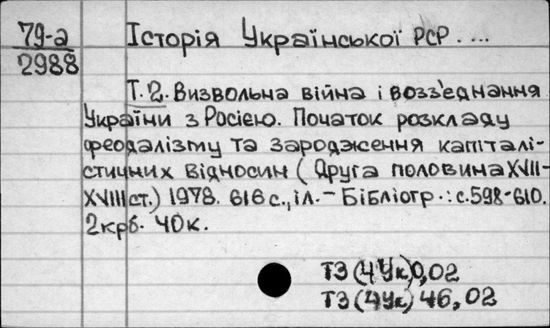 79-а
2988
Історія Української РСР. ...
Т.2. Визвольна війна і возз'єднання
України з Росією. Початок розкладу
феодалізму та зародження капіталі-
стичних відносин (Друга половина XVII-
XVIII ст.) 1978. 616 с., іл. – Бібліогр.: с.598-610.
2крб. 40к.
ТЗ (4Ук)0,02
ТЗ (4Ук) 46,02